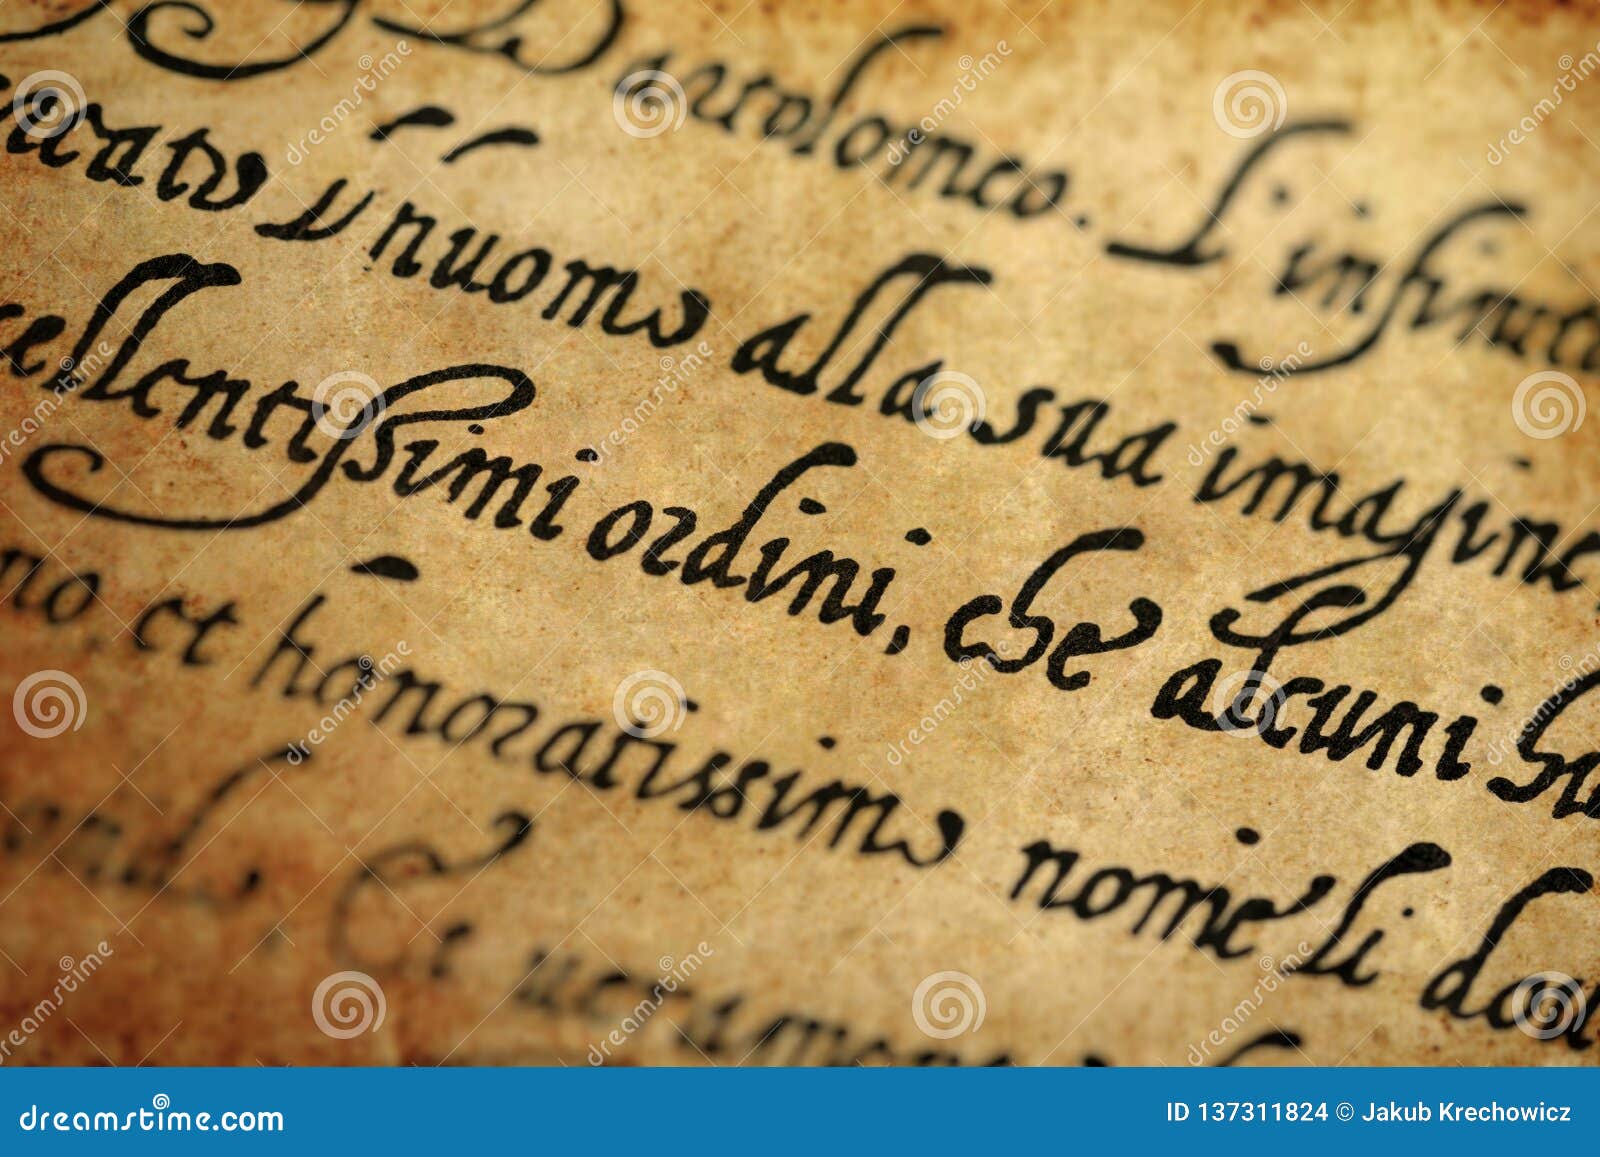 Bartolomeo. L'infinit
ecato v'nuomo alla sua imagine,
cellentissimi ordini, che alcuni h
no, et honoratissimo nome li dan
Et
dreamstime.com
ID 137311824 © Jakub Krechowicz